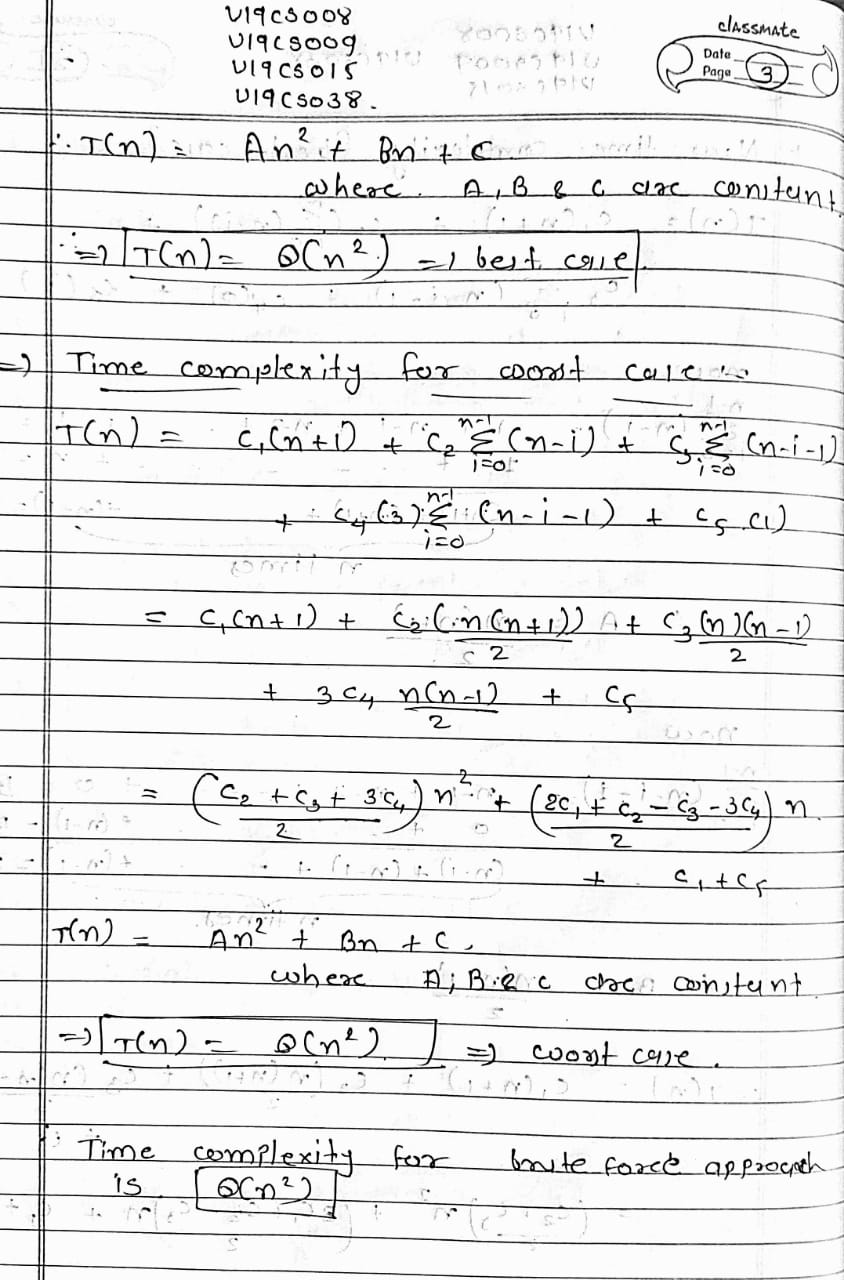 U19CS008
U19CS009
U19CS015
U19CS038.
classmate
Date
Page 3
∴ T(n) = An² + Bn + C
where A, B & C are constant.
∴ => T(n) = θ(n²) => best case.
=> Time complexity for worst case :-
T(n) = c₁(n+1) + c₂ Σ_{i=0}^{n-1} (n-i) + c₃ Σ_{i=0}^{n-1} (n-i-1)
+ c₄(3) Σ_{i=0}^{n-1} (n-i-1) + c₅(1)
= c₁(n+1) + c₂(n(n+1))/2 + c₃(n)(n-1)/2
+ 3c₄ n(n-1)/2 + c₅
= ((c₂ + c₃ + 3c₄)/2) n² + ((2c₁ + c₂ - c₃ - 3c₄)/2) n
+ c₁ + c₅
T(n) = An² + Bn + C,
where A, B & C are constant
=> T(n) = θ(n²) => worst case.
∴ Time complexity for brute force approach
is θ(n²)